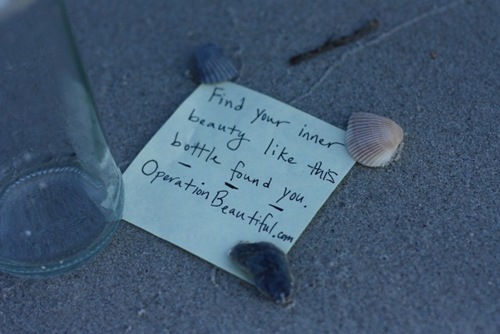 Find your inner
beauty like this
bottle found you.
OperationBeautiful.com